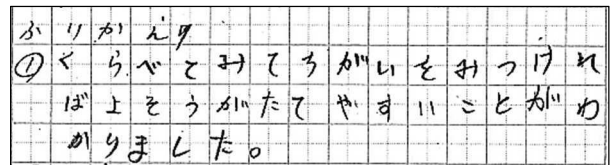 ふりかえり
①くらべてみてちがいをみつけれ
ば上そうがたてやすいことがわ
かりました。